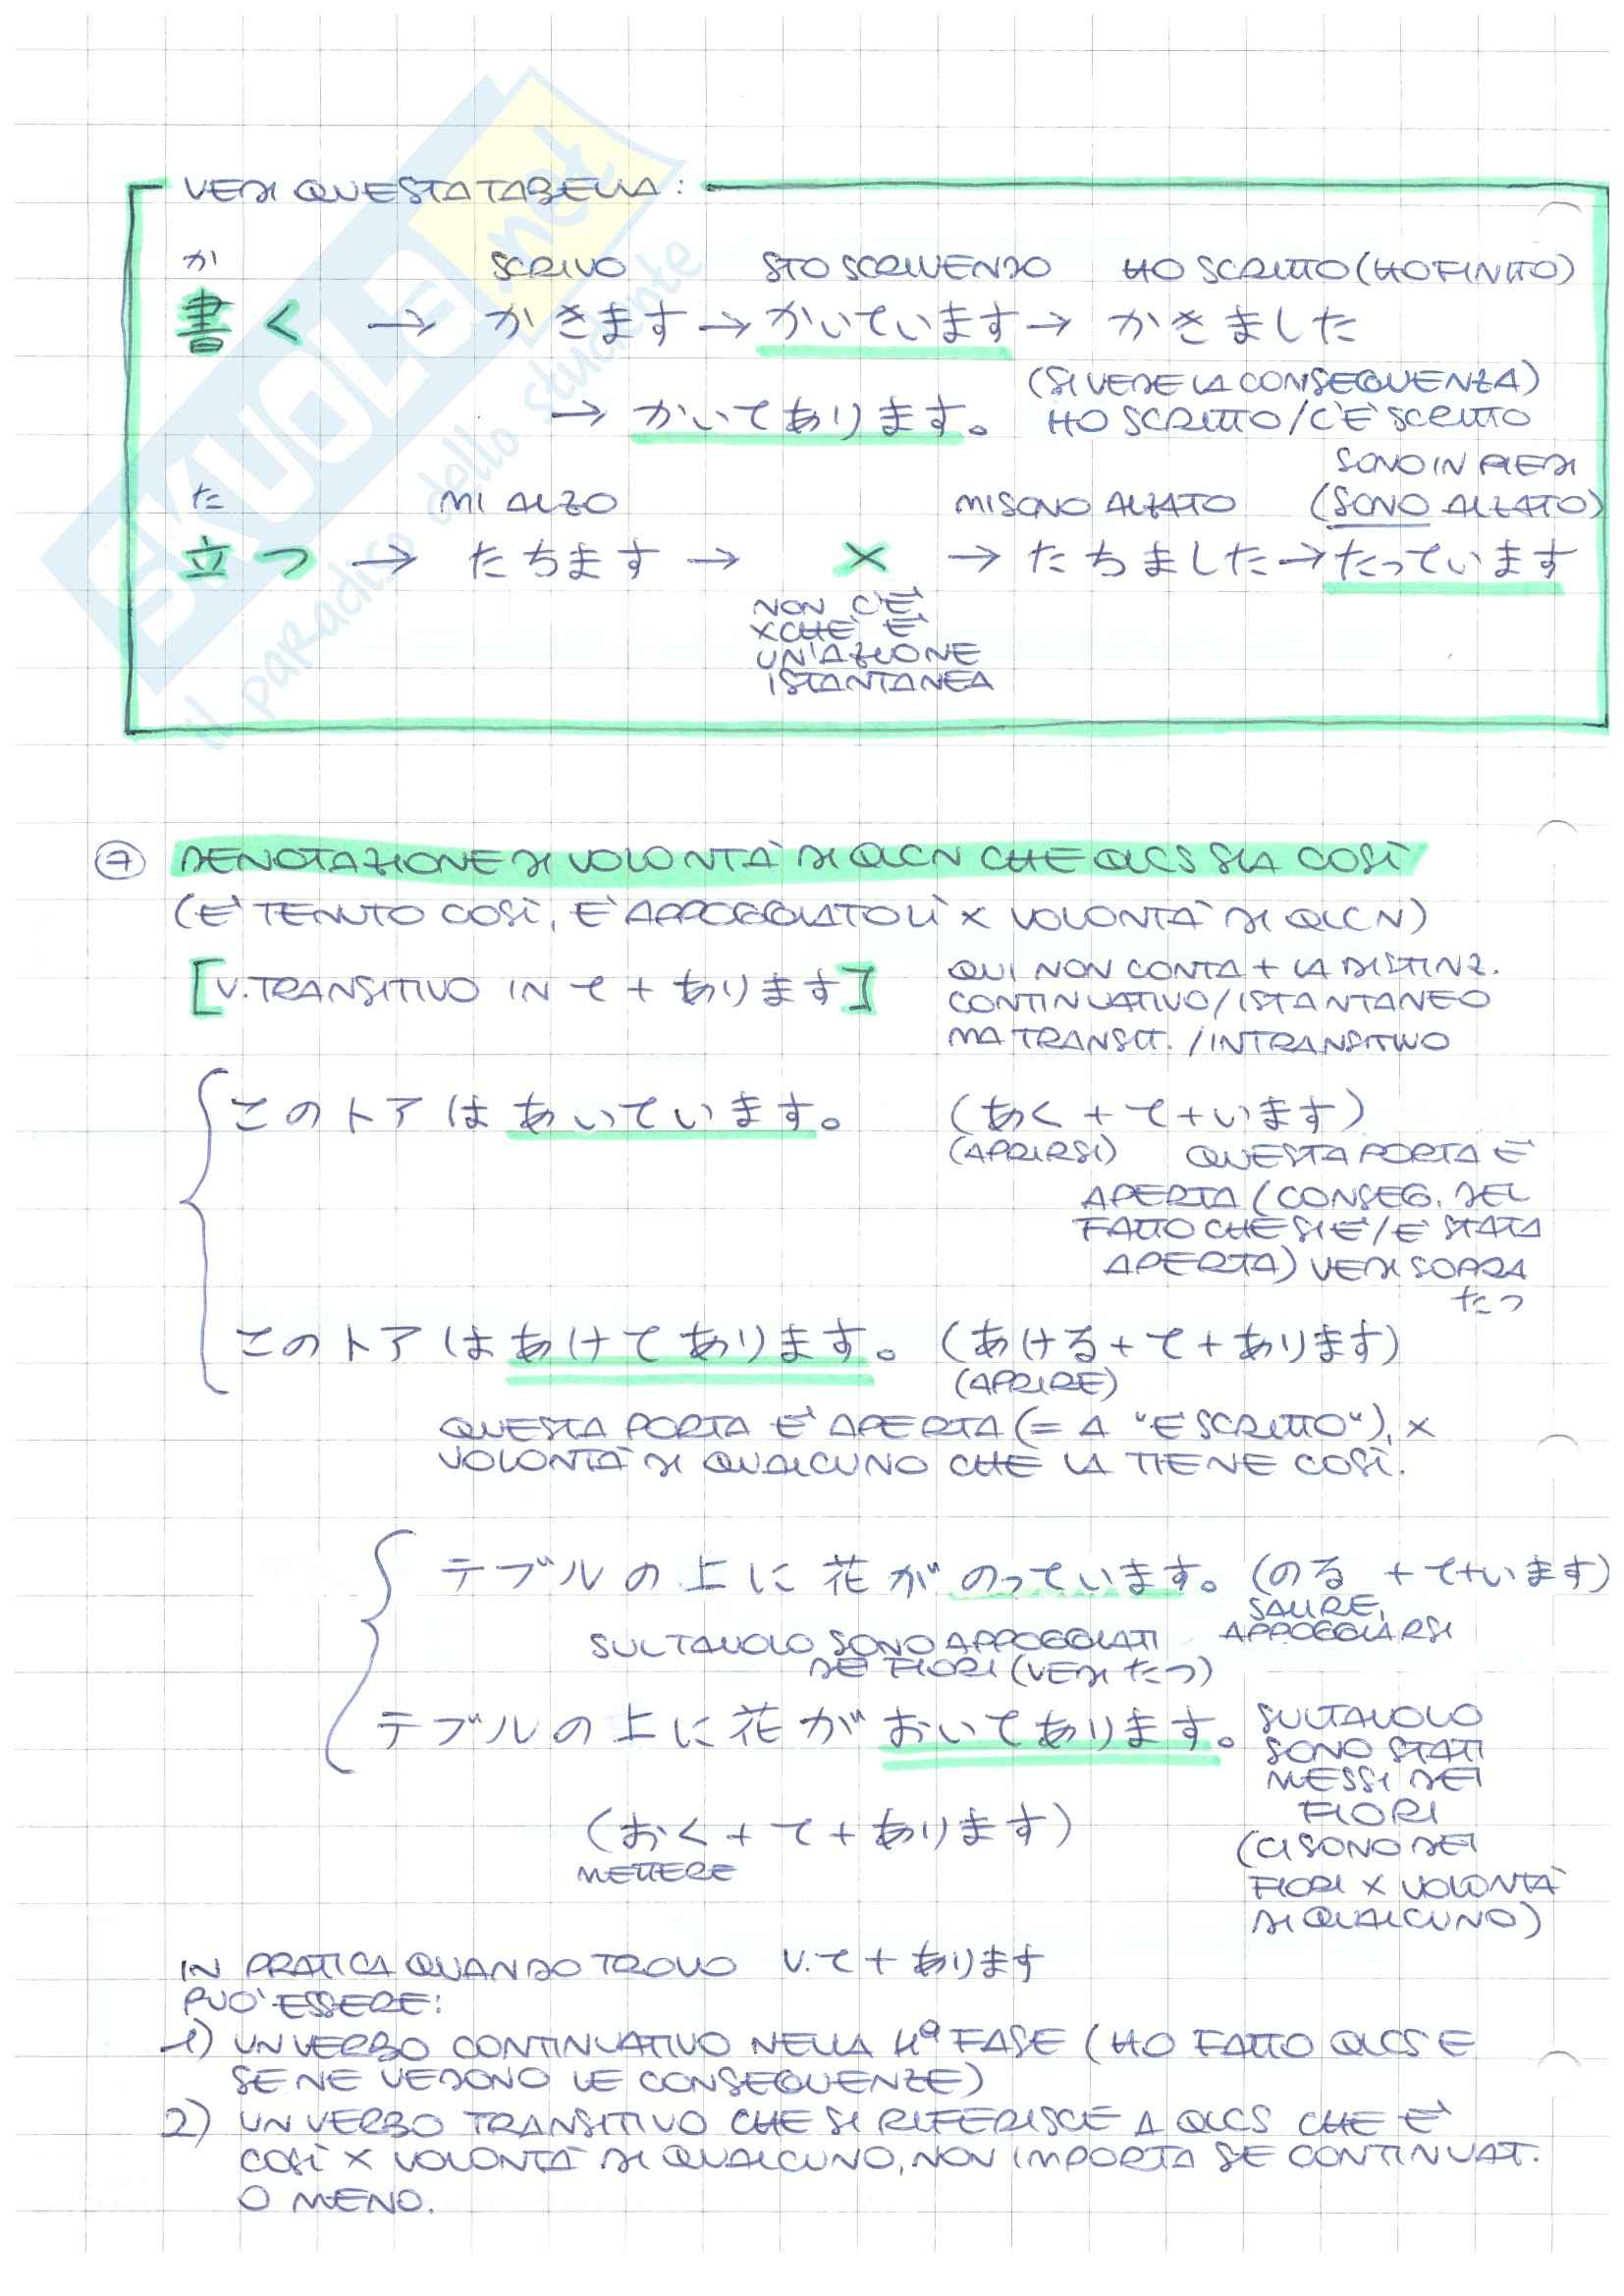 VEDI QUESTA TABELLA:
か SCRIVO STO SCRIVENDO HO SCRITTO (HO FINITO)
書く → かきます → かいています → かきました
(SI VEDE LA CONSEGUENZA)
→ かいてあります。 HO SCRITTO/C'È SCRITTO
SONO IN PIEDI
た MI ALZO MI SONO ALZATO (SONO ALZATO)
立つ → たちます → × → たちました → たっています
NON C'È
XCHÈ È
UN'AZIONE
ISTANTANEA
⑦ DENOTAZIONE DI VOLONTÀ DI QLCN CHE QLCS SIA COSÌ
(È TENUTO COSÌ, È APPOGGIATO LÌ X VOLONTÀ DI QLCN)
[V. TRANSITIVO IN て + あります] QUI NON CONTA + LA DISTINZ.
CONTINUATIVO/ISTANTANEO
MA TRANSIT. / INTRANSITIVO
このトアは あいています。 (あく + て + います)
(APRIRSI) QUESTA PORTA È
APERTA (CONSEG. DEL
FATTO CHE SI È/È STATA
APERTA) VEDI SOPRA
たつ
このトアは あけてあります。 (あける + て + あります)
(APRIRE)
QUESTA PORTA È APERTA (= A "È SCRITTO"), X
VOLONTÀ DI QUALCUNO CHE LA TIENE COSÌ.
テブルの上に花が のっています。 (のる + て + います)
SALIRE,
SUL TAVOLO SONO APPOGGIATI APPOGGIARSI
DEI FIORI (VEDI たつ)
テブルの上に花が おいてあります。 SUL TAVOLO
SONO STATI
MESSI DEI
FIORI
(おく + て + あります) (CI SONO DEI
METTERE FIORI X VOLONTÀ
DI QUALCUNO)
IN PRATICA QUANDO TROVO V. て + あります
PUO' ESSERE:
1) UN VERBO CONTINUATIVO NELLA 4ª FASE (HO FATTO QLCS E
SE NE VEDONO LE CONSEGUENZE)
2) UN VERBO TRANSITIVO CHE SI RIFERISCE A QLCS CHE È
COSÌ X VOLONTÀ DI QUALCUNO, NON IMPORTA SE CONTINUAT.
O MENO.
SKUOLA.net
il paradiso dello studente